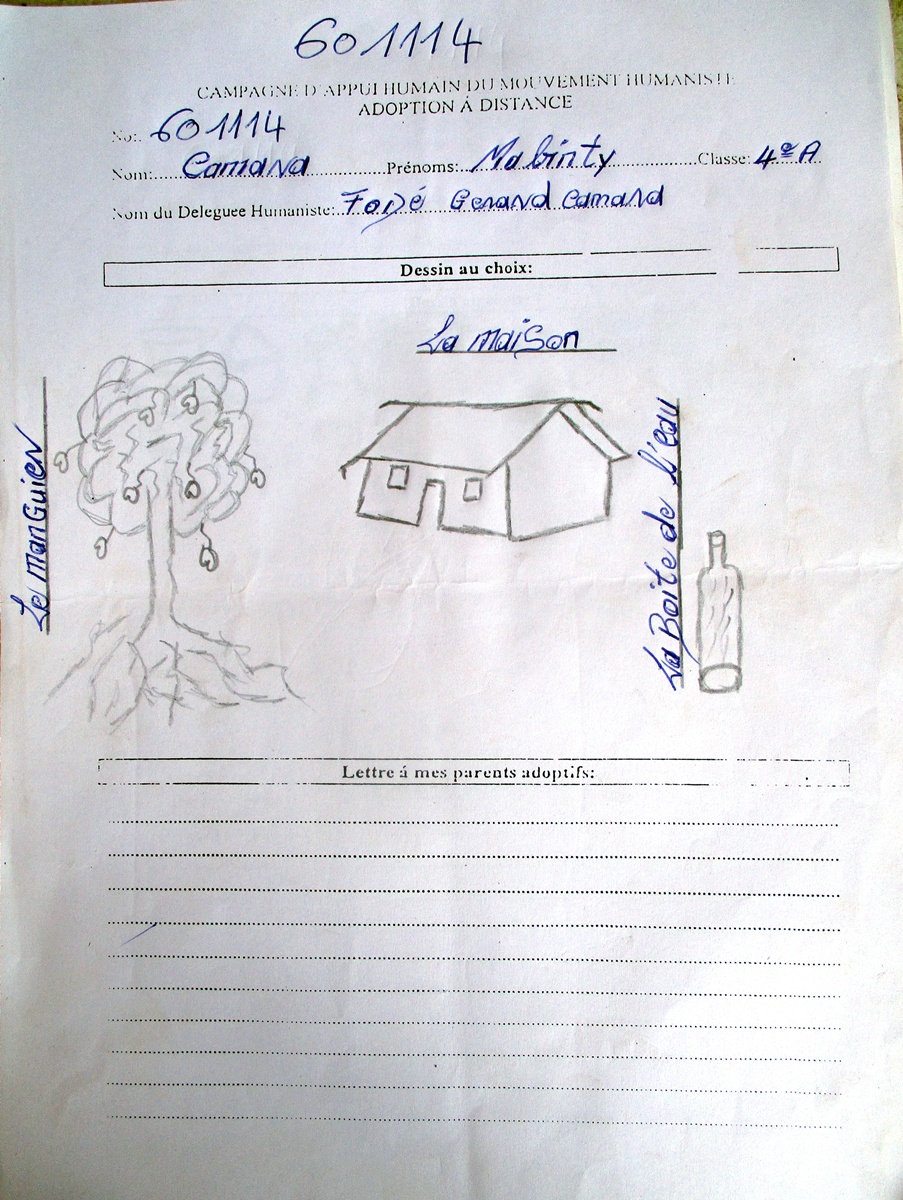 601114
CAMPAGNE D'APPUI HUMAIN DU MOUVEMENT HUMANISTE
ADOPTION Á DISTANCE
No: 601114
Nom: Camara Prénoms: Mabinty Classe: 4e A
Nom du Deleguee Humaniste: Fodé Gerard Camara
Dessin au choix:
La maiSon
Le manGuier
La Boite de l'eau
Lettre á mes parents adoptifs: